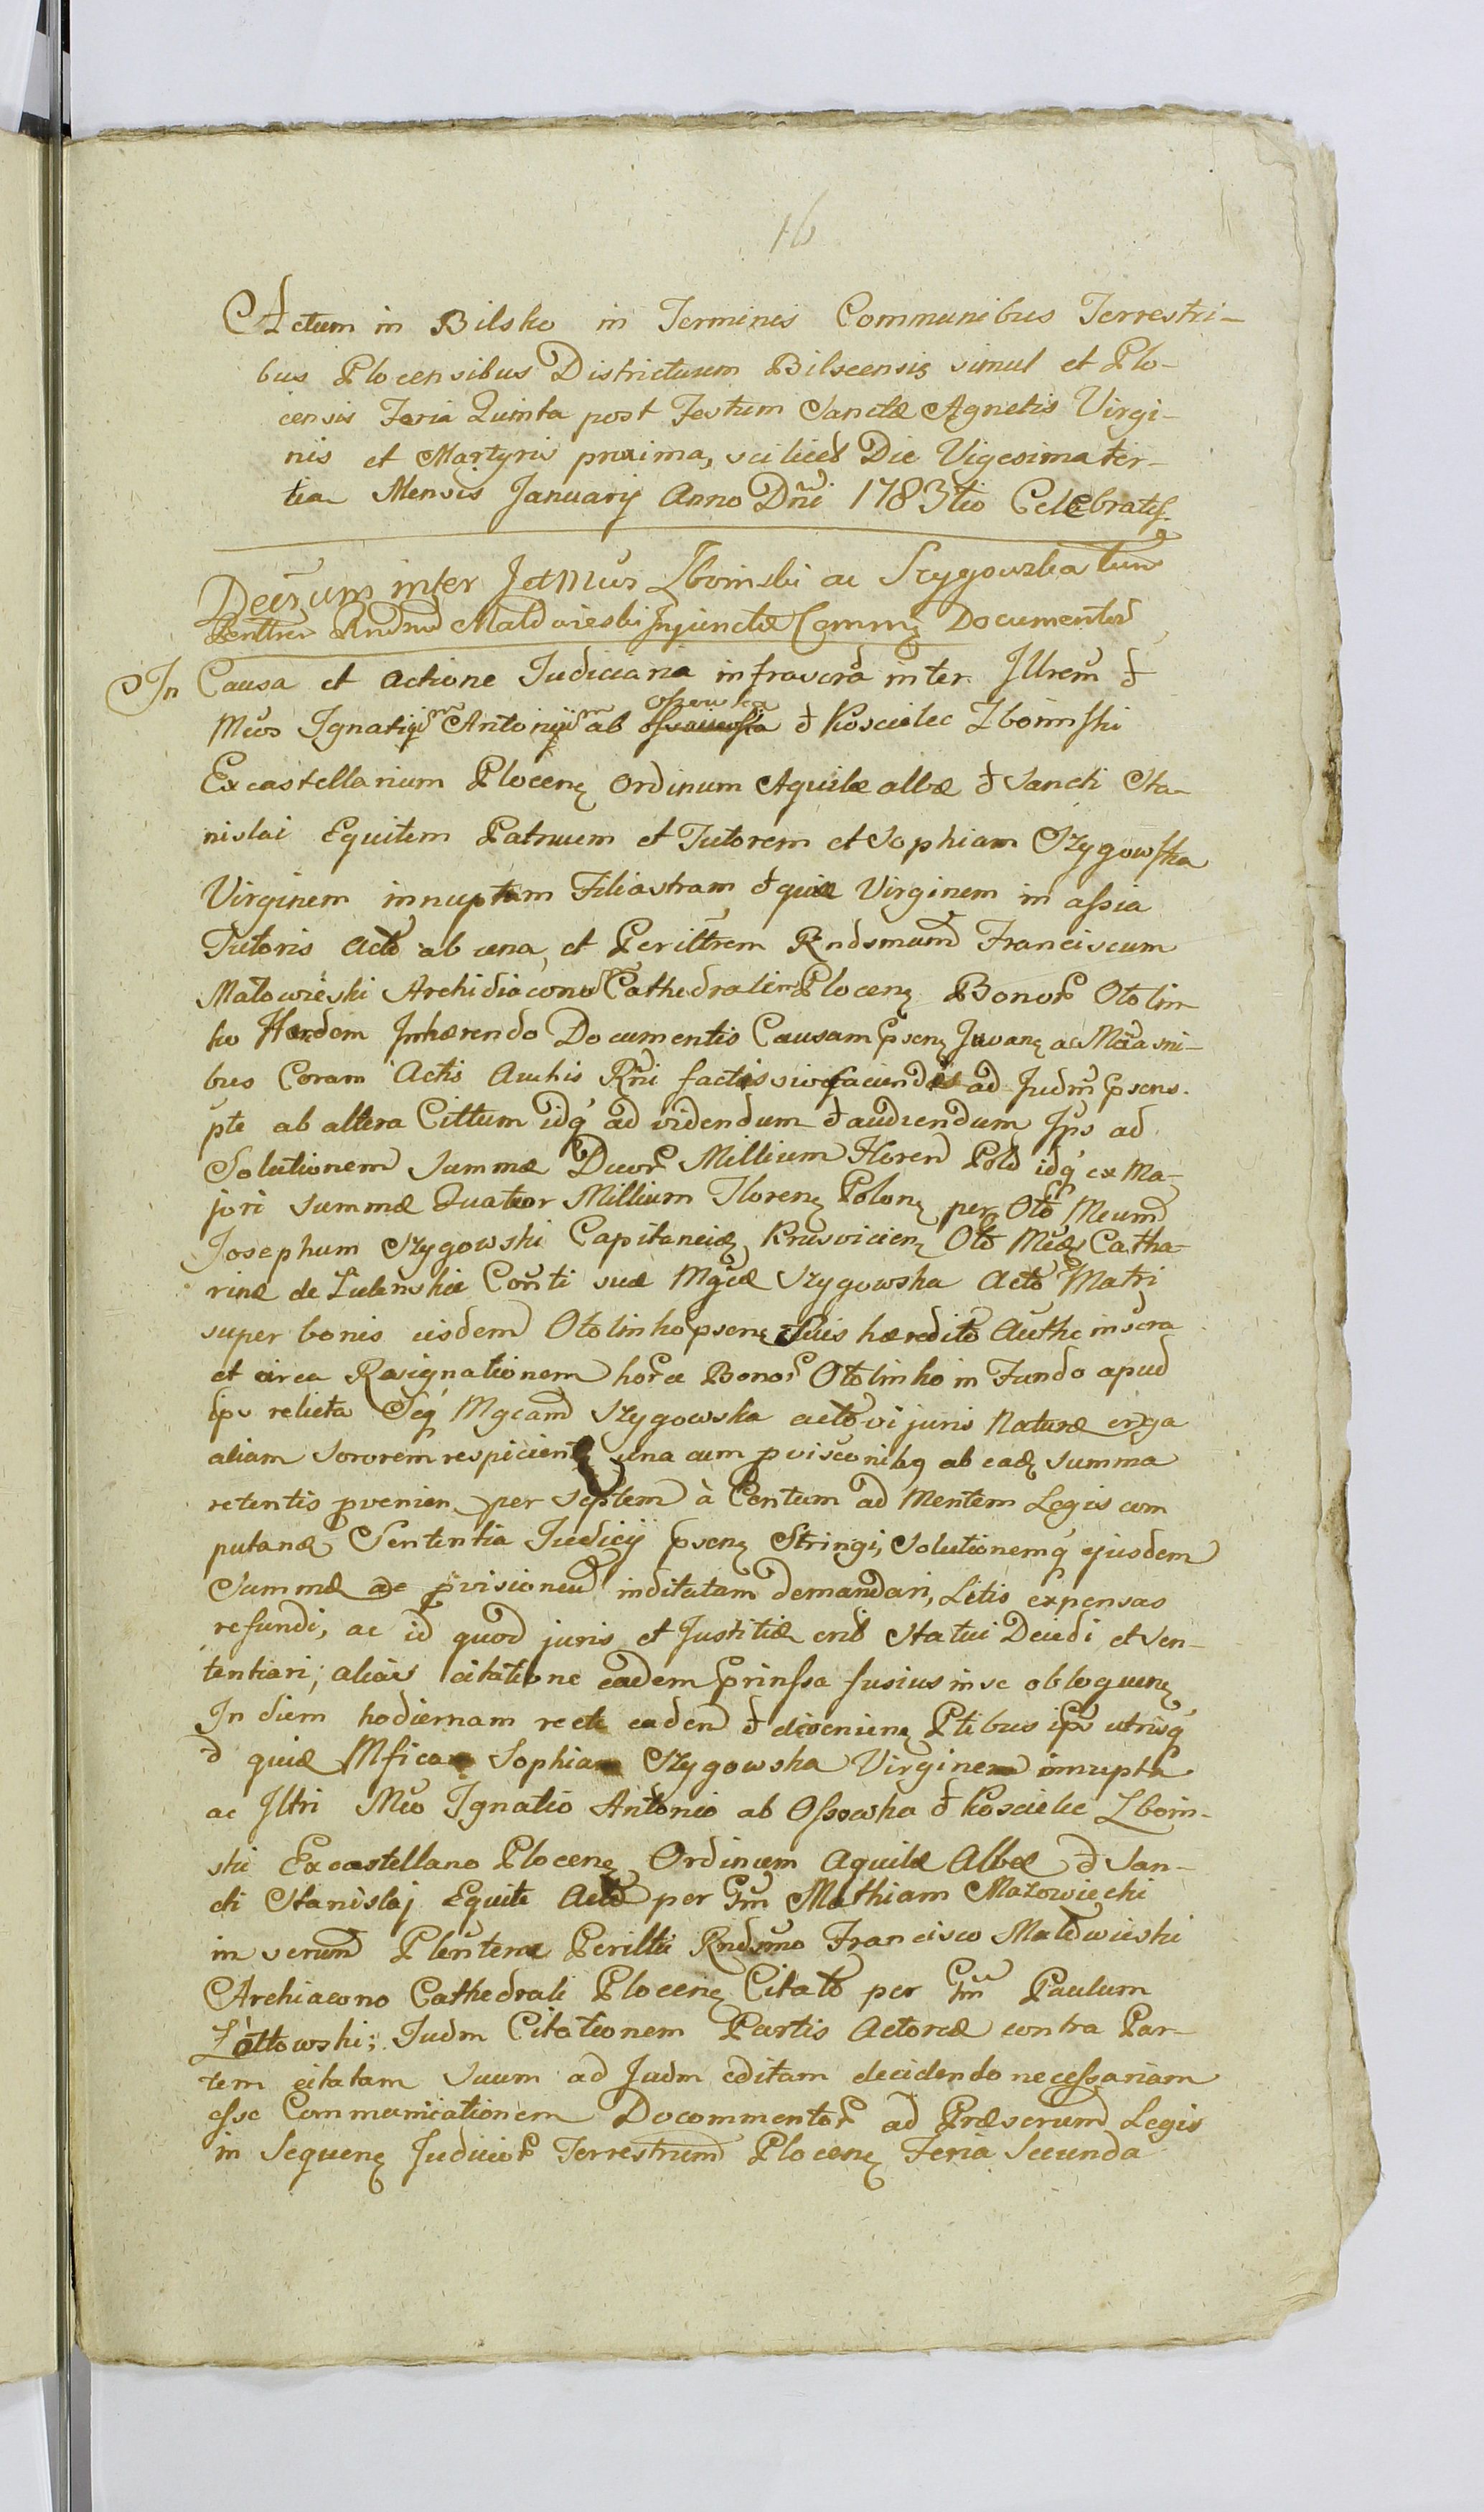 16
Actum in Bilsko in Terminis Communibus Terrestri-
bus Plocensibus Districtuum Bilscensis simul et Plo-
censis Feria Quinta post Festum Sanctæ Agnetis Virgi-
nis et Martyris proxima, scilicet Die Vigesima ter-
tia Mensis Januarij Anno Dni 1783tio Celebratis.
inter Zboinski ac Szygowska tum
Documentor
In Causa et Actione Judiciaria infrascra inter Illrem &
Mcos Ignatium Antonium ab Ossowka & Koscielec Zboinski
Excastellanum Plocens Ordinum Aquilæ albæ & Sancti Sta-
nislai Equitem Patruum et Tutorem et Sophiam Szygowska
Virginem innuptam Filiastram & quæ Virginem in assia
Tutoris Acto ab una, et Perilltrem Rndsmum Franciscum
Matowieski Archidiaconum Cathedralem Plocens Bonor Otolin-
ko Hærdem Inhærendo Documentis Causam psens Juvans ac
bus Coram Actis Authis Rni factis sive faciendis ad Judm psens.
pte ab altera Cittum idq ad videndum & audiendum Ips ad
Solutionem Summæ Duor Millium Floren Pold idq ex Ma-
jori summæ Quatuor Millium Florens Polons per Oto Mcum
Josephum Szygowski Capitaneid Krusviciens Oto Catha-
rinæ de Conti suæ Mgcæ Szygowska Acto Matri
super bonis eisdem Otolinko psens Suis hæredito Authe inscra
et circa Resignationem horce Bonor Otolinko in Fundo apud
Ips relicta Seq Mgcam Szygowska acto vi juris Naturæ erga
aliam Sororem respiciens una cum pvisionibq ab eade summa
retentis pvenien per Septem à Centum ad Mentem Legis com
putanæ Sententia Judicij psens Stringi, Solutionemq ejusdem
Summæ ac pvisioneum inditatam demandari, Litis expensas
refundi, ac id quod juris et Justitiæ erit Statui Decidi et Sen-
tentiari; alias citatione eadem prinssa fusius in se obloquens
In diem hodiernam recte caden & deveniens Ptibus ips utrisq
& quiæ Mfica Sophia Szygowska Virgine innupta
ac Illtri Mco Ignatio Antonio ab Ossowka & Koscielec Zboin-
ski Excastellano Plocens Ordinum Aquilæ Albæ & San-
cti Stanislaj Equite Acto per Gm Mathiam Mazowiecki
in verum Plentem Perilltri Rndsmo Francisco Matowieski
Archiacono Cathedrali Plocens Citato per Gm Paulum
Zottowski; Judm Citationem Partis Actoreæ contra Par-
tem citatam Suum ad Judm editam decidendo necessariam
esse Communicationem Documentor ad Præscrum Legis
in Sequens Judicior Terrestrium Plocens Feria Secunda